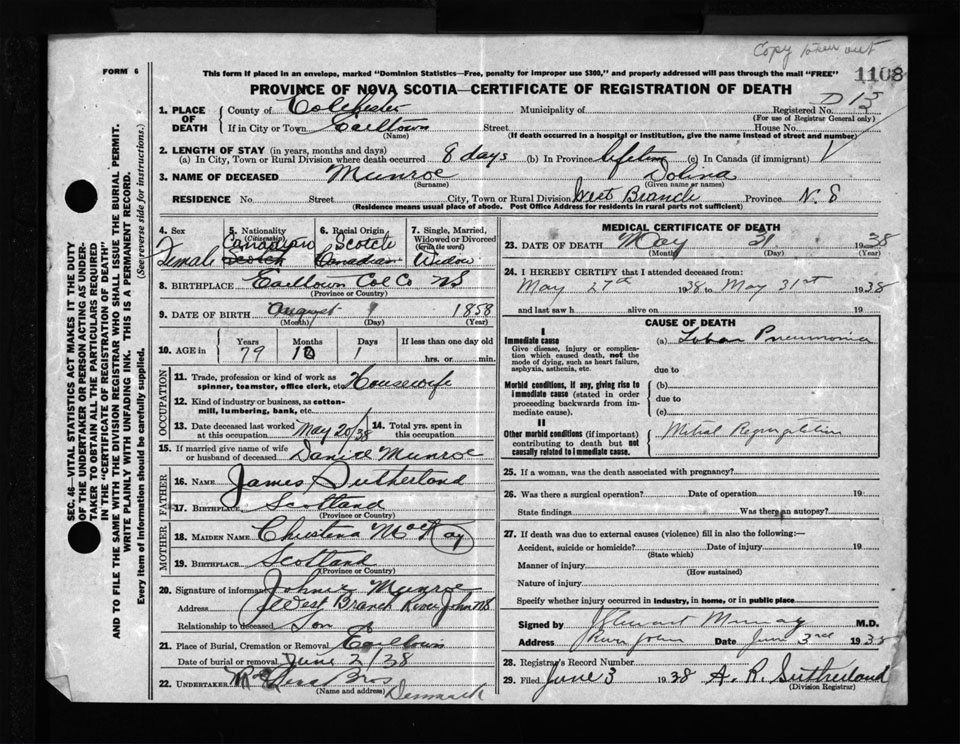 Copy taken out
FORM 6
This form if placed in an envelope, marked "Dominion Statistics—Free, penalty for improper use $300," and properly addressed will pass through the mail "FREE"
1108
PROVINCE OF NOVA SCOTIA—CERTIFICATE OF REGISTRATION OF DEATH
1. PLACE OF DEATH County of Colchester Municipality of Registered No. D 15
(For use of Registrar General only)
If in City or Town Earltown Street House No.
(Name) (If death occurred in a hospital or institution, give the name instead of street and number)
2. LENGTH OF STAY (in years, months and days)
(a) In City, Town or Rural Division where death occurred 8 days (b) In Province lifetime (c) In Canada (if immigrant)
3. NAME OF DECEASED Munroe Dolina
(Surname) (Given name or names)
RESIDENCE No. Street City, Town or Rural Division West Branch Province N.S
(Residence means usual place of abode. Post Office Address for residents in rural parts not sufficient)
4. Sex 5. Nationality (Citizenship) 6. Racial Origin 7. Single, Married, Widowed or Divorced (write the word)
Canadian Scotch
Female Scotch Canadian Widow
8. BIRTHPLACE Earltown Col Co NS
(Province or Country)
9. DATE OF BIRTH August 1 1858
(Month) (Day) (Year)
10. AGE in Years Months Days If less than one day old
79 10 1 hrs. or min.
OCCUPATION
11. Trade, profession or kind of work as spinner, teamster, office clerk, etc. Housewife
12. Kind of industry or business, as cotton-mill, lumbering, bank, etc.
13. Date deceased last worked at this occupation May 20/38 14. Total yrs. spent in this occupation
15. If married give name of wife or husband of deceased Daniel Munroe
FATHER
16. Name James Sutherland
17. Birthplace Scotland
(Province or Country)
MOTHER
18. Maiden Name Christena MacKay
19. Birthplace Scotland
(Province or Country)
20. Signature of informant Johnie Munroe
Address West Branch River John NS
Relationship to deceased Son
21. Place of Burial, Cremation or Removal Earltown
Date of burial or removal June 2/38
22. UNDERTAKER Bros
(Name and address) Denmark
MEDICAL CERTIFICATE OF DEATH
23. DATE OF DEATH May 31 1938
(Month) (Day)
24. I HEREBY CERTIFY that I attended deceased from:
May 27th 1938 to May 31st 1938
and last saw h alive on 19
CAUSE OF DEATH
I
Immediate cause (a) Lobar Pneumonia
Give disease, injury or complication which caused death, not the mode of dying, such as heart failure, asphyxia, asthenia, etc.
due to
Morbid conditions, if any, giving rise to immediate cause (stated in order proceeding backwards from immediate cause). (b)
due to
(c)
II
Other morbid conditions (if important) contributing to death but not causally related to immediate cause. Mitral Regurgitation
25. If a woman, was the death associated with pregnancy?
26. Was there a surgical operation? Date of operation 19
State findings Was there an autopsy?
27. If death was due to external causes (violence) fill in also the following:—
Accident, suicide or homicide? Date of injury 19
(State which)
Manner of injury
(How sustained)
Nature of injury
Specify whether injury occurred in industry, in home, or in public place
Signed by J Stewart Murray M.D.
Address River John Date June 3rd 1938
28. Registrar's Record Number
29. Filed June 3 1938 A. R. Sutherland
(Division Registrar)
SEC. 46—VITAL STATISTICS ACT MAKES IT THE DUTY
OF THE UNDERTAKER OR PERSON ACTING AS UNDER-
TAKER TO OBTAIN ALL THE PARTICULARS REQUIRED
IN THE "CERTIFICATE OF REGISTRATION OF DEATH"
AND TO FILE THE SAME WITH THE DIVISION REGISTRAR WHO SHALL ISSUE THE BURIAL PERMIT.
WRITE PLAINLY WITH UNFADING INK. THIS IS A PERMANENT RECORD.
Every item of information should be carefully supplied. (See reverse side for instructions.)